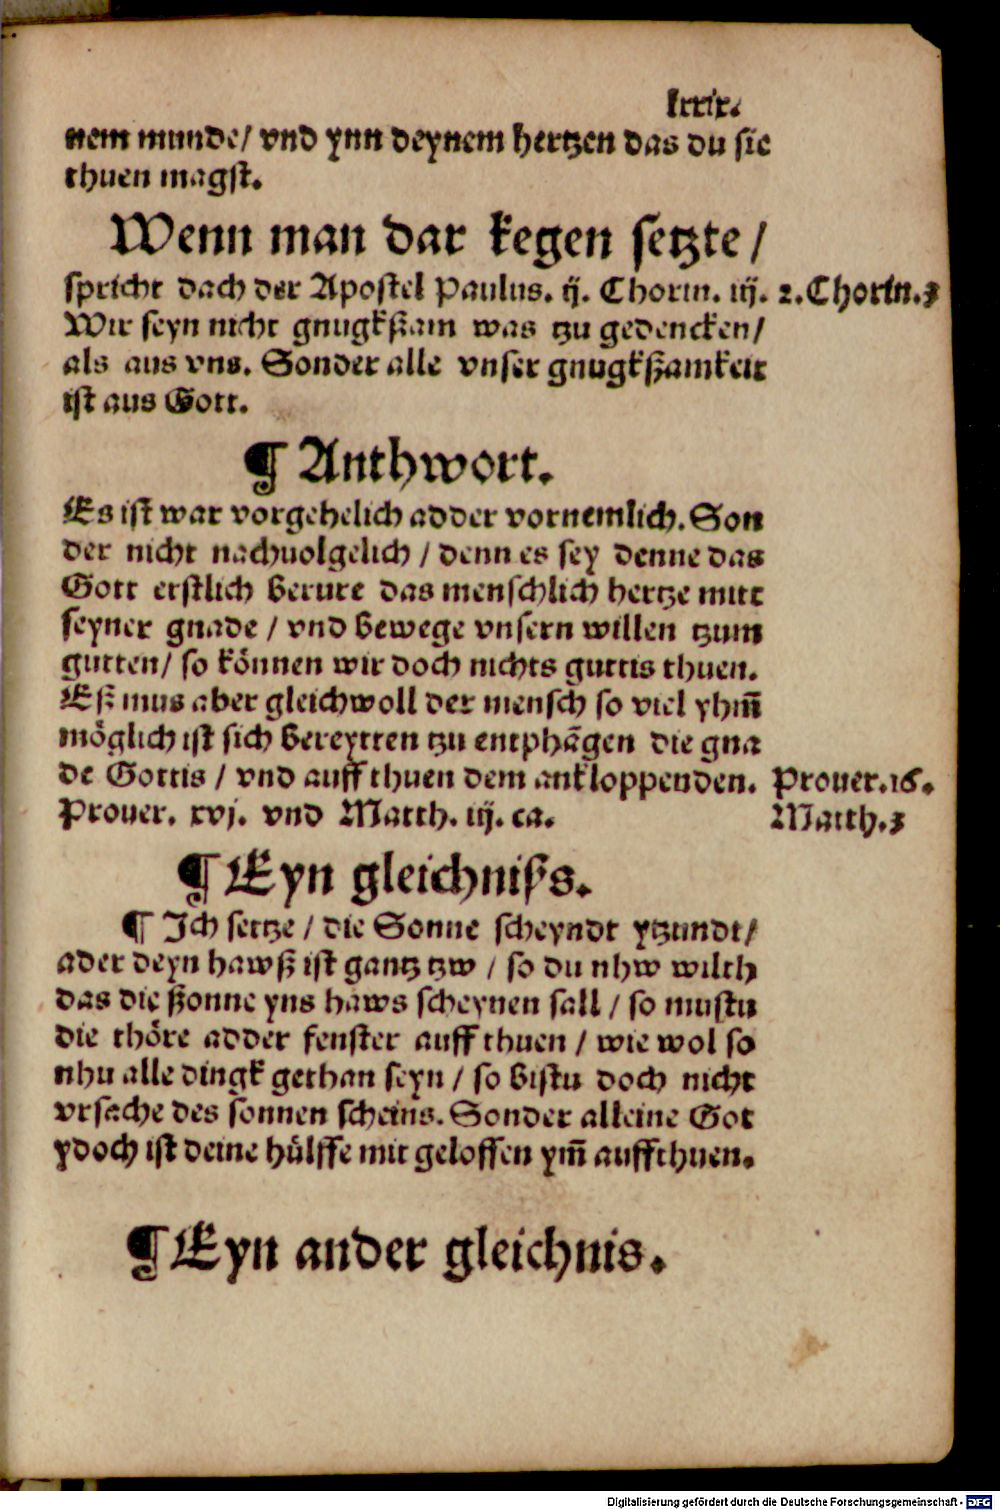 lxxix.
nem munde/ vnd ynn deynem hertzen das du sie
thuen magst.
Wenn man dar kegen setzte /
spricht dach der Apostel Paulus. ij. Chorin. iij. 2.Chorin.3
Wir seyn nicht gnugkßam was tzu gedencken/
als aus vns. Sonder alle vnser gnugkßamkeit
ist aus Gott.
¶ Anthwort.
Es ist war vorgehelich adder vornemlich. Son
der nicht nachuolgelich / denn es sey denne das
Gott erstlich berure das menschlich hertze mitt
seyner gnade / vnd bewege vnsern willen tzum
gutten/ so können wir doch nichts guttis thuen.
Eß mus aber gleichwoll der mensch so viel yhm̄
möglich ist sich bereytten tzu entphāgen die gna
de Gottis / vnd auff thuen dem ankloppenden. Prouer.16.
Prouer. xvj. vnd Matth. iij. ca. Matth.3
¶ Eyn gleichniss.
¶ Ich setze / die Sonne scheyndt ytzundt/
ader deyn hawß ist gantz tzw / so du nhw wilth
das die ßonne yns haws scheynen sall / so mustu
die thöre adder fenster auff thuen / wie wol so
nhu alle dingk gethan seyn / so bistu doch nicht
vrsache des sonnen scheins. Sonder alleine Got
ydoch ist deine hülffe mit geloffen ym̄ auffthuen.
¶ Eyn ander gleichnis.
Digitalisierung gefördert durch die Deutsche Forschungsgemeinschaft - DFG